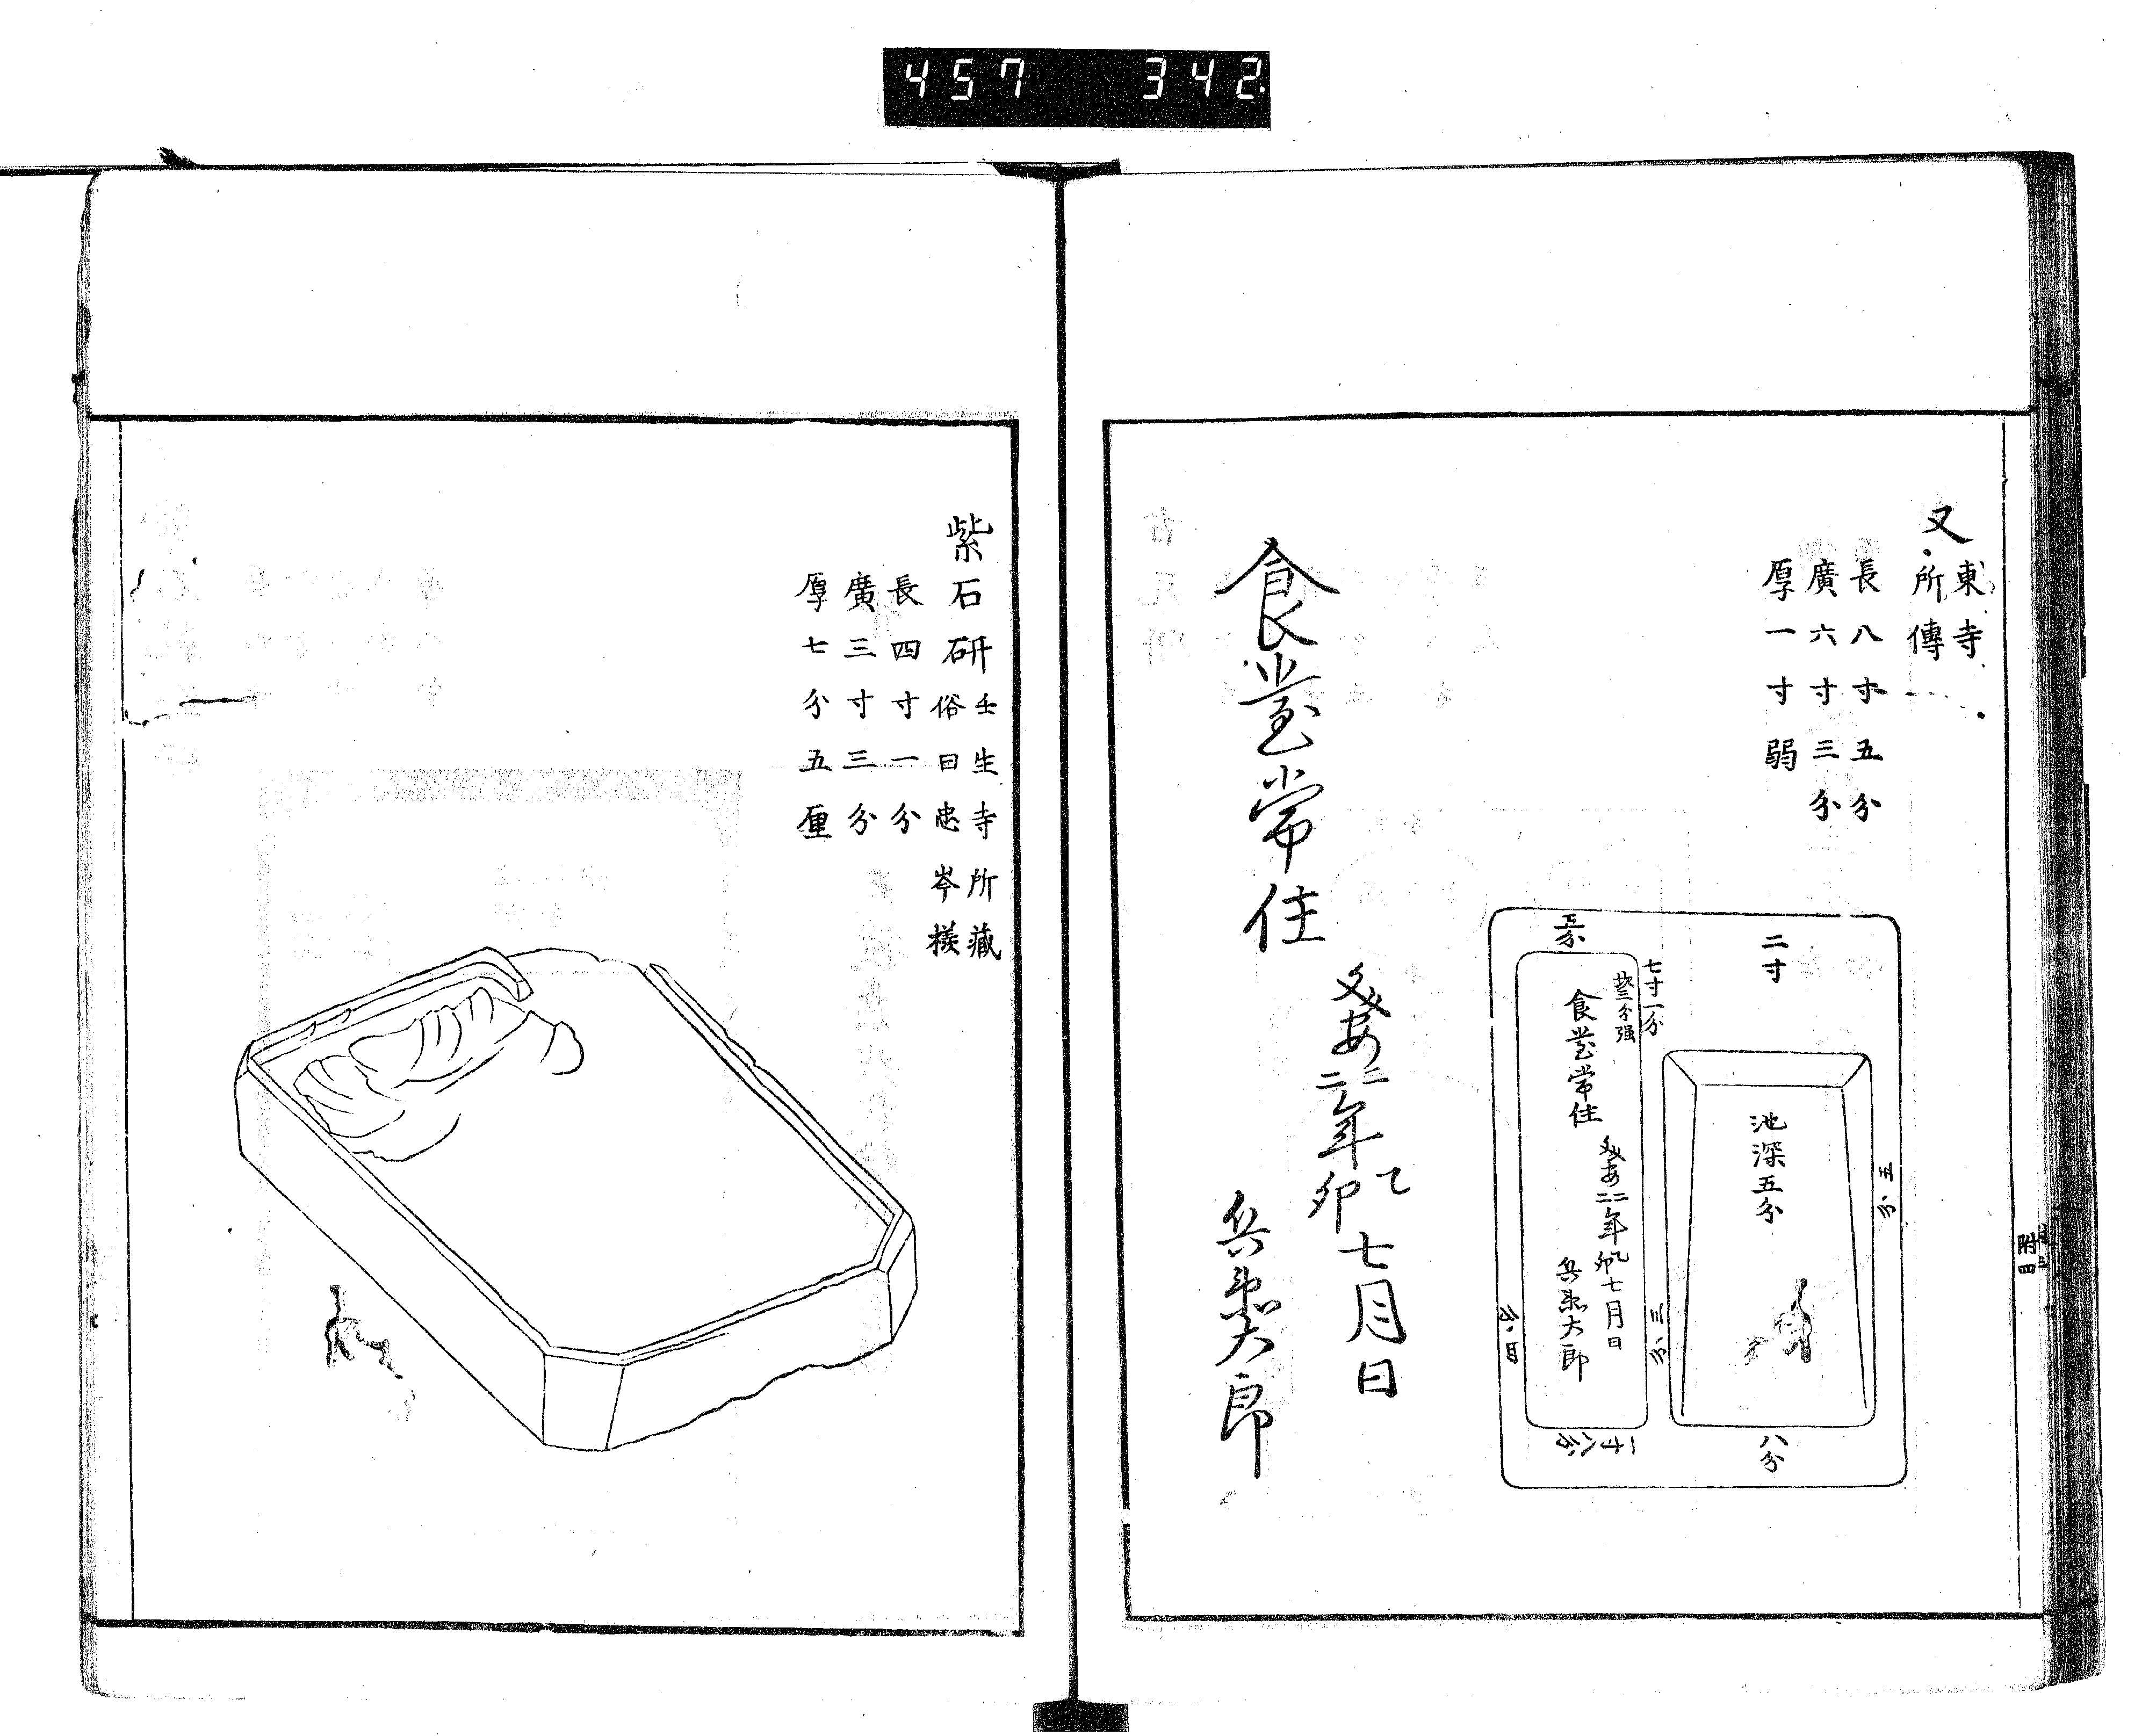 457 342
又 東寺
所傳
長八寸五分
廣六寸三分
厚一寸弱
二寸
池深五分
五分
八分
七寸一分
三分
食堂常住
二二年乙卯七月日
兵衛大郎
一寸八分
四分
食堂常住
二二年乙卯七月日
兵衛大郎
附四
紫石研 壬生寺所藏
俗曰忠岑樣
長四寸一分
廣三寸三分
厚七分五厘